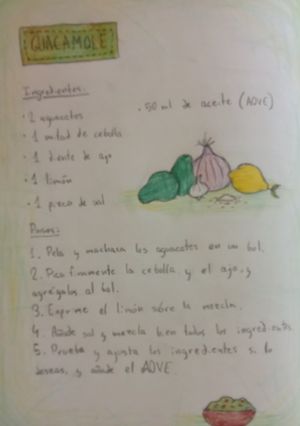 GUACAMOLE
Ingredientes:
· 2 aguacates
· 1 mitad de cebolla
· 1 diente de ajo
· 1 limón
· 1 pizca de sal
· 50 ml de aceite (AOVE)
Pasos:
1. Pela y machaca los aguacates en un bol.
2. Pica finamente la cebolla y el ajo, y
agrégalos al bol.
3. Exprime el limón sobre la mezcla.
4. Añade sal y mezcla bien todos los ingredientes
5. Prueba y ajusta los ingredientes si lo
deseas, y añade el AOVE.